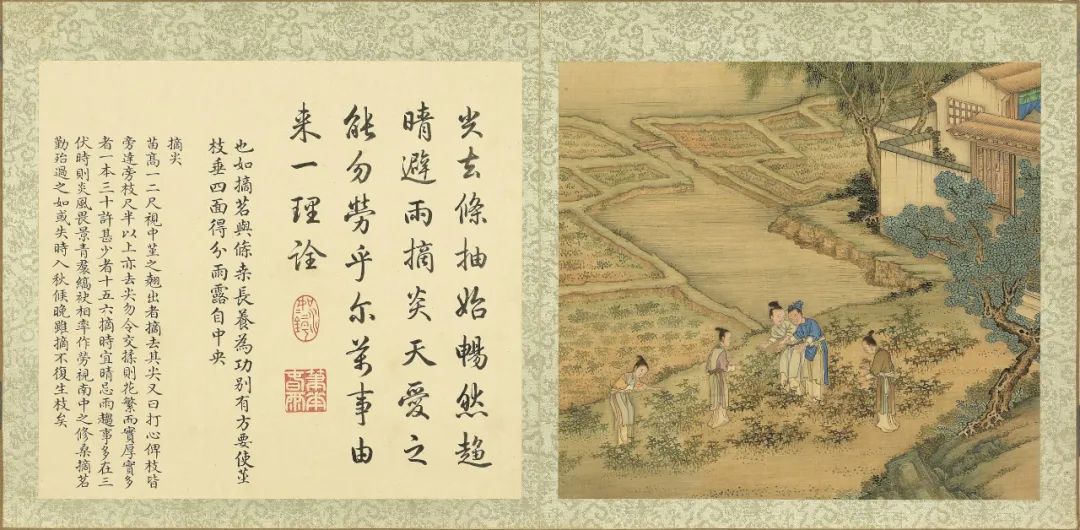 尖去條抽始暢然趨
晴避雨摘炎天愛之
能勿勞乎尔萬事由
来一理詮
也如摘茗與條桒長養為功别有方要使莖
枝垂四面得分雨露自中央
摘尖
苗髙一二尺視中莖之翹出者摘去其尖又曰打心俾枝皆
旁達旁枝尺半以上亦去尖勿令交揉則花繁而實厚實多
者一本三十許甚少者十五六摘時宜晴忌雨趨事多在三
伏時則炎風畏景青裠縞袂相率作勞視南中之修桑摘茗
勤殆過之如或失時入秋候晚雖摘不復生枝矣